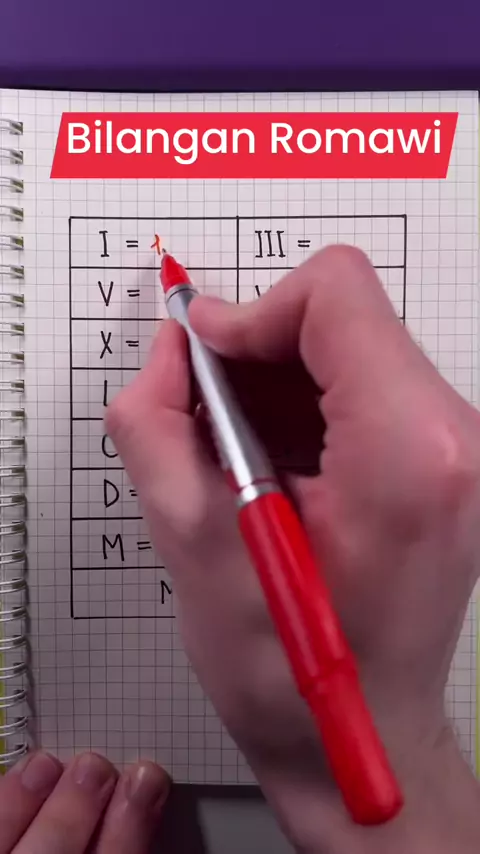 Bilangan Romawi
I = 1 III =
V = V
X =
L
C
D =
M =
M